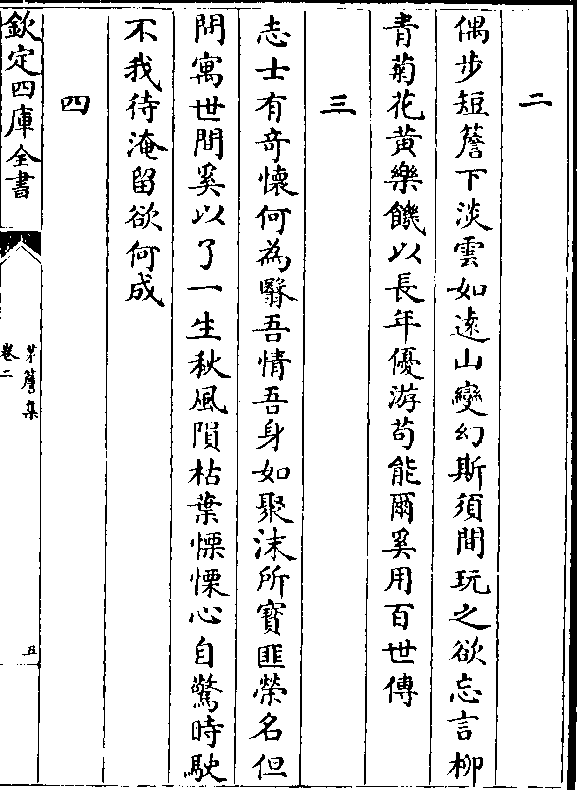 二
偶步短簷下淡雲如逺山變幻斯須間玩之欲忘言柳
青菊花黄樂饑以長年優游苟能爾奚用百世傳
三
志士有竒懷何為翳吾情吾身如聚沫所寳匪榮名但
問寓世間奚以了一生秋風隕枯葉慄慄心自驚時駛
不我待淹留欲何成
四
欽定四庫全書
茅簷集
卷二
五